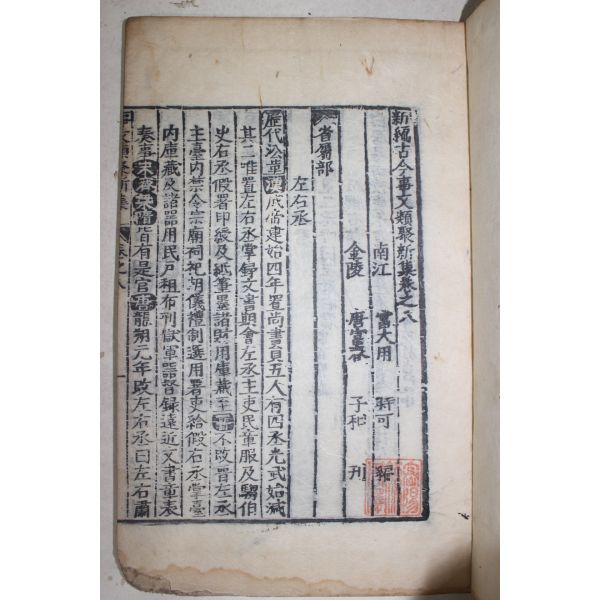 新編古今事文類聚新集卷之八
南江 富大用 時可 編
金陵 唐富春 子和 刊
省屬部
左右丞
歷代沿革 漢成帝建始四年置尚書員五人有四丞光武始減
其二唯置左右丞掌錄文書期會左丞主吏民章服及騶伯
史右丞假署印綬及紙筆墨諸財用庫藏至晉不改晉左丞
主臺內禁令宗廟祠祀朝儀禮制選用署吏給假右丞掌臺
內庫藏及諸器用民戶租布刑獄軍器督錄遠近文書章表
奏事宋齊梁隋皆有是官唐龍朔元年改左右丞曰左右肅
卷之八